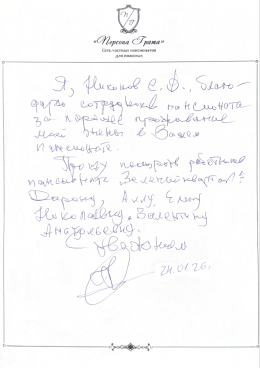 «Персона Грата»
Сеть частных пансионатов
для пожилых
Я, Никонов С. В., благо-
дарю сотрудников пансионата
за хорошее проживание
моей в Вашем
пансионате.
Прошу поощрить работников
пансионата "Зеленый квартал":
Дарину, Аллу, Елену
Николаевну, Валентину
Анатольевну.
С уважением
24.01.26.